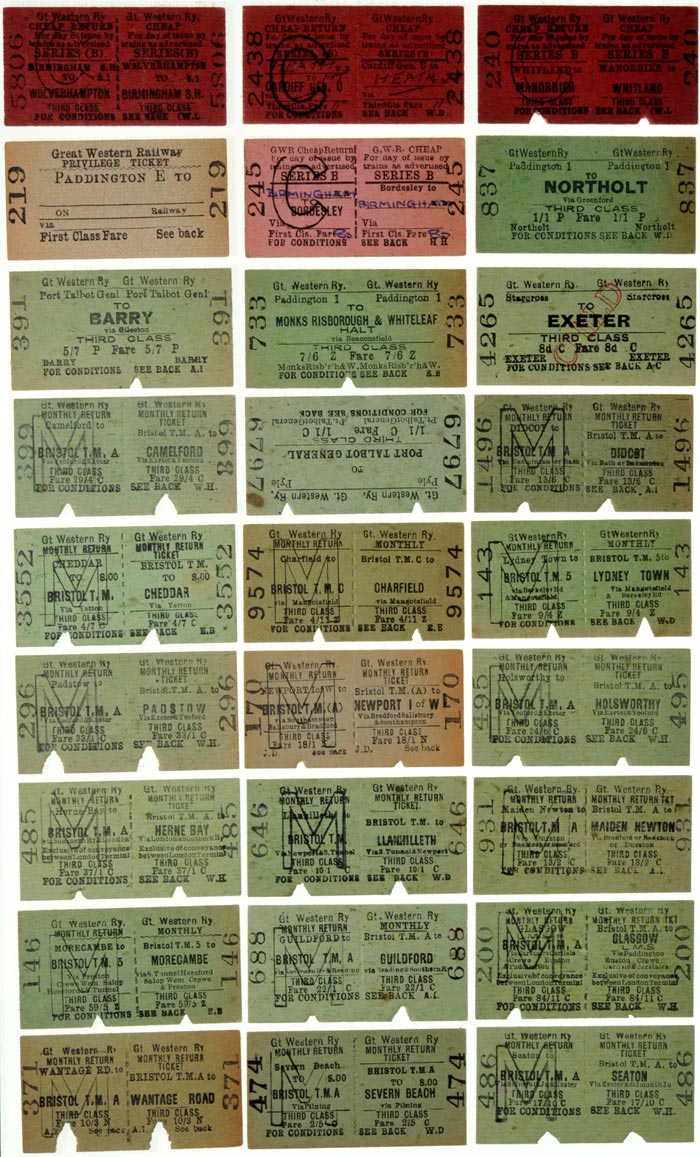 5806
Gt Western Ry. Gt. Western Ry
CHEAP RETURN CHEAP
For day of issue by For day of issue by
trains as advertised trains as advertised
SERIES (B) SERIES (B)
BIRMINGHAM S.H. WOLVERHAMPTON
TO S.1 TO S.1
WOLVERHAMPTON BIRMINGHAM S.H.
THIRD CLASS THIRD CLASS
FOR CONDITIONS SEE BACK (W.L
5806
2438
Gt Western Ry. Gt Western Ry.
CHEAP RETURN CHEAP
For day of issue by For day of issue by
trains as advertised trains as advertised
SERIES B SERIES B
Cardiff Gen. U to
TO HEATH
CARDIFF GEN. U
Via Via
Third Cls. Fare Third Cls. Fare
FOR CONDITIONS SEE BACK
2438
240
Gt Western Ry Gt Western Ry.
CHEAP RETURN CHEAP
For day of issue by For day of issue by
trains as advertised trains as advertised
SERIES B SERIES B
WHITLAND to MANORBIER to
MANORBIER WHITLAND
THIRD CLASS THIRD CLASS
FOR CONDITIONS SEE BACK (W.L
240
219
Great Western Railway
PRIVILEGE TICKET
PADDINGTON E TO
ON Railway
Via
First Class Fare See back
219
245
G.W.R Cheap Return G.W.R. CHEAP
For day of issue by For day of issue by
trains as advertised trains as advertised
SERIES B SERIES B
BIRMINGHAM Bordesley to
TO BIRMINGHAM
BORDESLEY
Via Via
First Cls. Fare First Cls. Fare
FOR CONDITIONS SEE BACK H H
245
837
Gt Western Ry Gt Western Ry
Paddington 1 Paddington 1
TO
NORTHOLT
Via Greenford
THIRD CLASS
1/1 P Fare 1/1 P
Northolt Northolt
FOR CONDITIONS SEE BACK W.D
837
391
Gt Western Ry Gt Western Ry
Port Talbot Genl Port Talbot Genl
TO
BARRY
via Gileston
THIRD CLASS
5/7 P Fare 5/7 P
BARRY BARRY
FOR CONDITIONS SEE BACK A.I
391
733
Gt Western Ry. Gt Western Ry
Paddington 1 Paddington 1
TO
MONKS RISBOROUGH & WHITELEAF
HALT
via Beaconsfield
THIRD CLASS
7/6 Z Fare 7/6 Z
MonksRisb'r'h&W. MonksRisb'r'h&W.
FOR CONDITIONS SEE BACK E.B
733
4265
Gt. Western Ry Gt. Western Ry
Starcross Starcross
TO
EXETER
THIRD CLASS
8d C Fare 8d C
EXETER EXETER
FOR CONDITIONS SEE BACK A.C
4265
399
Gt. Western Ry Gt. Western Ry
MONTHLY RETURN MONTHLY RETURN
TICKET
Camelford to Bristol T.M. A. to
BRISTOL T.M. A CAMELFORD
THIRD CLASS THIRD CLASS
Fare 29/4 C Fare 29/4 C
FOR CONDITIONS SEE BACK W.H.
399
6797
Gt. Western Ry. Gt. Western Ry.
Pyle Pyle
TO
PORT TALBOT GENERAL
THIRD CLASS
1/1 C Fare 1/1 C
Pt.TalbotGeneral Pt.TalbotGeneral
FOR CONDITIONS SEE BACK
6797
1496
Gt. Western Ry Gt. Western Ry
MONTHLY RETURN MONTHLY RETURN
TICKET
DIDCOT to Bristol T.M. A. to
BRISTOL T.M. A DIDCOT
Via Bath or Badminton
THIRD CLASS THIRD CLASS
Fare 13/6 C Fare 13/6 C
FOR CONDITIONS SEE BACK A.I
1496
3552
Gt. Western Ry Gt. Western Ry
MONTHLY RETURN MONTHLY RETURN
TICKET
CHEDDAR BRISTOL T.M.
TO S.00 TO S.00
BRISTOL T.M. CHEDDAR
Via Yatton Via Yatton
THIRD CLASS THIRD CLASS
Fare 4/7 C Fare 4/7 C
FOR CONDITIONS SEE BACK E.B
3552
9574
Gt. Western Ry Gt. Western Ry.
MONTHLY RETURN MONTHLY
Charfield to Bristol T.M. C to
BRISTOL T.M. C CHARFIELD
via Mangotsfield via Mangotsfield
THIRD CLASS THIRD CLASS
Fare 4/11 Z Fare 4/11 Z
FOR CONDITIONS SEE BACK E.E
9574
143
Gt. Western Ry. Gt. Western Ry.
MONTHLY RETURN MONTHLY
Lydney Town to BRISTOL T.M. 5 to
BRISTOL T.M. 5 LYDNEY TOWN
via Mangotsfield
& Berkeley Rd
THIRD CLASS THIRD CLASS
Fare 9/4 Z Fare 9/4 Z
FOR CONDITIONS SEE BACK W.D
143
296
Gt. Western Ry Gt. Western Ry
MONTHLY RETURN MONTHLY RETURN
TICKET
Padstow to Bristol T.M. A. to
BRISTOL T.M. A PADSTOW
Via Exeter & Yeoford Via Exeter & Yeoford
THIRD CLASS THIRD CLASS
Fare 33/1 C Fare 33/1 C
FOR CONDITIONS SEE BACK W.H.
296
170
Gt. Western Ry Gt. Western Ry.
MONTHLY RETURN MONTHLY RETURN
TICKET
NEWPORT I o W to Bristol T.M. (A) to
BRISTOL T.M. (A) NEWPORT I of W
Via Southampton Via Bradford Salisbury
Salisbury & Bradford & Southampton
THIRD CLASS THIRD CLASS
Fare 18/1 N Fare 18/1 N
J.D. see back J.D. See back
170
495
Gt. Western Ry Gt. Western Ry
MONTHLY RETURN MONTHLY RETURN
TICKET
Holsworthy to Bristol T.M. A. to
BRISTOL T.M. A HOLSWORTHY
THIRD CLASS THIRD CLASS
Fare 24/6 C Fare 24/6 C
FOR CONDITIONS SEE BACK W.H.
495
485
Gt. Western Ry Gt. Western Ry
MONTHLY RETURN MONTHLY RETURN
TICKET
Herne Bay to Bristol T.M. A. to
BRISTOL T.M. A HERNE BAY
Exclusive of conveyance Exclusive of conveyance
between London Termini between London Termini
THIRD CLASS THIRD CLASS
Fare 37/1 C Fare 37/1 C
FOR CONDITIONS SEE BACK W.H
485
646
Gt. Western Ry. Gt. Western Ry.
MONTHLY RETURN MONTHLY RETURN
TICKET.
Llanhilleth to BRISTOL T.M. to
BRISTOL T.M. LLANHILLETH
Via Newport & S. Tunnel Via S. Tunnel & Newport
THIRD CLASS THIRD CLASS
Fare 10/1 C Fare 10/1 C
FOR CONDITIONS SEE BACK W.D
646
931
Gt. Western Ry Gt. Western Ry
MONTHLY RETURN MONTHLY RETURN TKT
Maiden Newton to Bristol T.M. A to
BRISTOL T.M A MAIDEN NEWTON
or Durston
THIRD CLASS THIRD CLASS
Fare 13/2 C Fare 13/2 C
FOR CONDITIONS SEE BACK A.I
931
146
Gt. Western Ry. Gt. Western Ry
MONTHLY RETURN MONTHLY
MORECAMBE to Bristol T.M. 5 to
BRISTOL T.M. 5 MORECAMBE
via Preston via S. Tunnel Hereford
Crewe Wem Salop Salop Wem Crewe
Hereford S Tunnel & Preston
THIRD CLASS THIRD CLASS
Fare 59/5 Z Fare 59/5 Z
FOR CONDITIONS SEE BACK E.B
146
688
Gt. Western Ry Gt. Western Ry.
MONTHLY RETURN MONTHLY
GUILDFORD to Bristol T.M. A to
BRISTOL T.M. A GUILDFORD
via Reading & Southern Ry
THIRD CLASS THIRD CLASS
Fare 22/1 C Fare 22/1 C
FOR CONDITIONS SEE BACK A.I.
688
200
Gt. Western Ry Gt. Western Ry
MONTHLY RETURN MONTHLY RETURN TKT
GLASGOW Bristol T.M. A. to
BRISTOL T.M. A GLASGOW
L M S
Exclusive of conveyance Exclusive of conveyance
THIRD CLASS THIRD CLASS
Fare 84/11 C Fare 84/11 C
FOR CONDITIONS SEE BACK W.H
200
371
Gt. Western Ry Gt. Western Ry.
MONTHLY RETURN MONTHLY RETURN
TICKET
WANTAGE RD. to BRISTOL T.M.A to
BRISTOL T.M. A WANTAGE ROAD
THIRD CLASS THIRD CLASS
Fare 10/3 N Fare 10/3 N
A.I See back A.I See back
371
474
Gt Western Ry Gt Western Ry
MONTHLY RETURN MONTHLY RETURN
TICKET
Severn Beach BRISTOL T.M.A
TO S.00 TO S.00
BRISTOL T.M.A SEVERN BEACH
Via Pilning via Pilning
THIRD CLASS THIRD CLASS
Fare 2/5 C Fare 2/5 C
FOR CONDITIONS SEE BACK W.D
474
486
Gt. Western Ry Gt. Western Ry
MONTHLY RETURN MONTHLY RETURN
TICKET
Seaton to Bristol T.M. A. to
BRISTOL T.M. A SEATON
THIRD CLASS THIRD CLASS
Fare 17/10 C Fare 17/10 C
FOR CONDITIONS SEE BACK W.H.
486